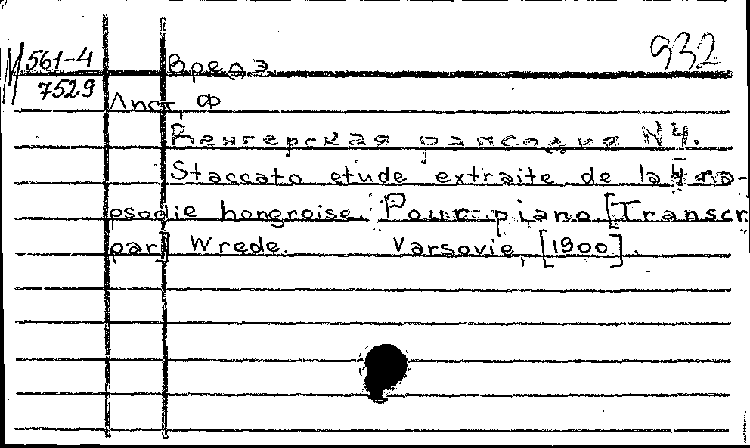 М 561-4 Вредэ 932
7529
Лист, Ф
Венгерская рапсодия N4.
Staccato etude extraite de la 4 ra-
psodie hongroise. Pour piano. [Transcr.
par] Wrede. Varsovie, [1900].